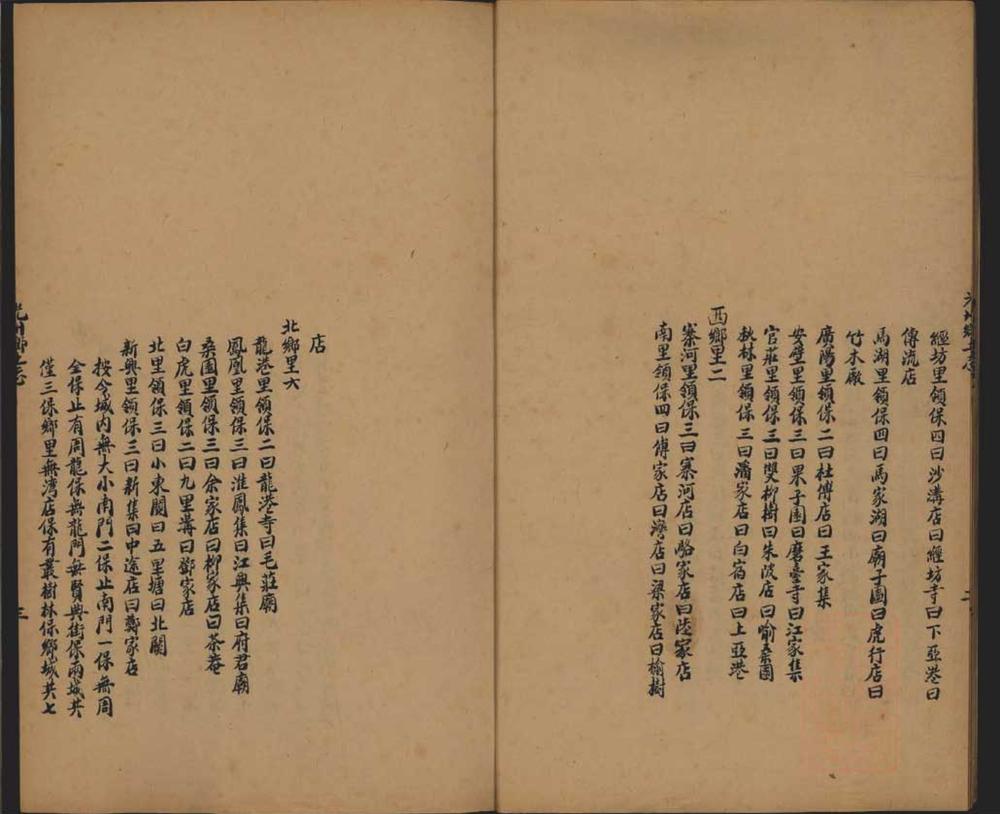 經坊里領保四曰沙溝店曰經坊寺曰下亞港曰
傅流店
馬湖里領保四曰馬家湖曰廟子園曰虎行店曰
竹木廠
廣陽里領保二曰杜傅店曰王家集
安壁里領保三曰果子園曰磨臺寺曰江家集
官莊里領保三曰雙柳樹曰朱陂店曰喻棗園
秋林里領保三曰潘家店曰白宿店曰上亞港
西鄉里二
寨河里領保三曰寨河店曰駱家店曰陸家店
南里領保四曰傅家店曰灣店曰梁家店曰榆樹
店
北鄉里六
龍港里領保二曰龍港寺曰毛莊廟
鳳凰里領保三曰淮鳳集曰江興集曰府君廟
桑園里領保三曰余家店曰柳家店曰茶菴
白虎里領保二曰九里溝曰鄧家店
北里領保三曰小東關曰五里塘曰北關
新興里領保三曰新集曰中途店曰鄭家店
按今城內無大小南門二保止南門一保無周
全保止有周龍保無龍門無賢興街保兩城共
僅三保鄉里無灣店保有叢樹林保鄉城共七
三